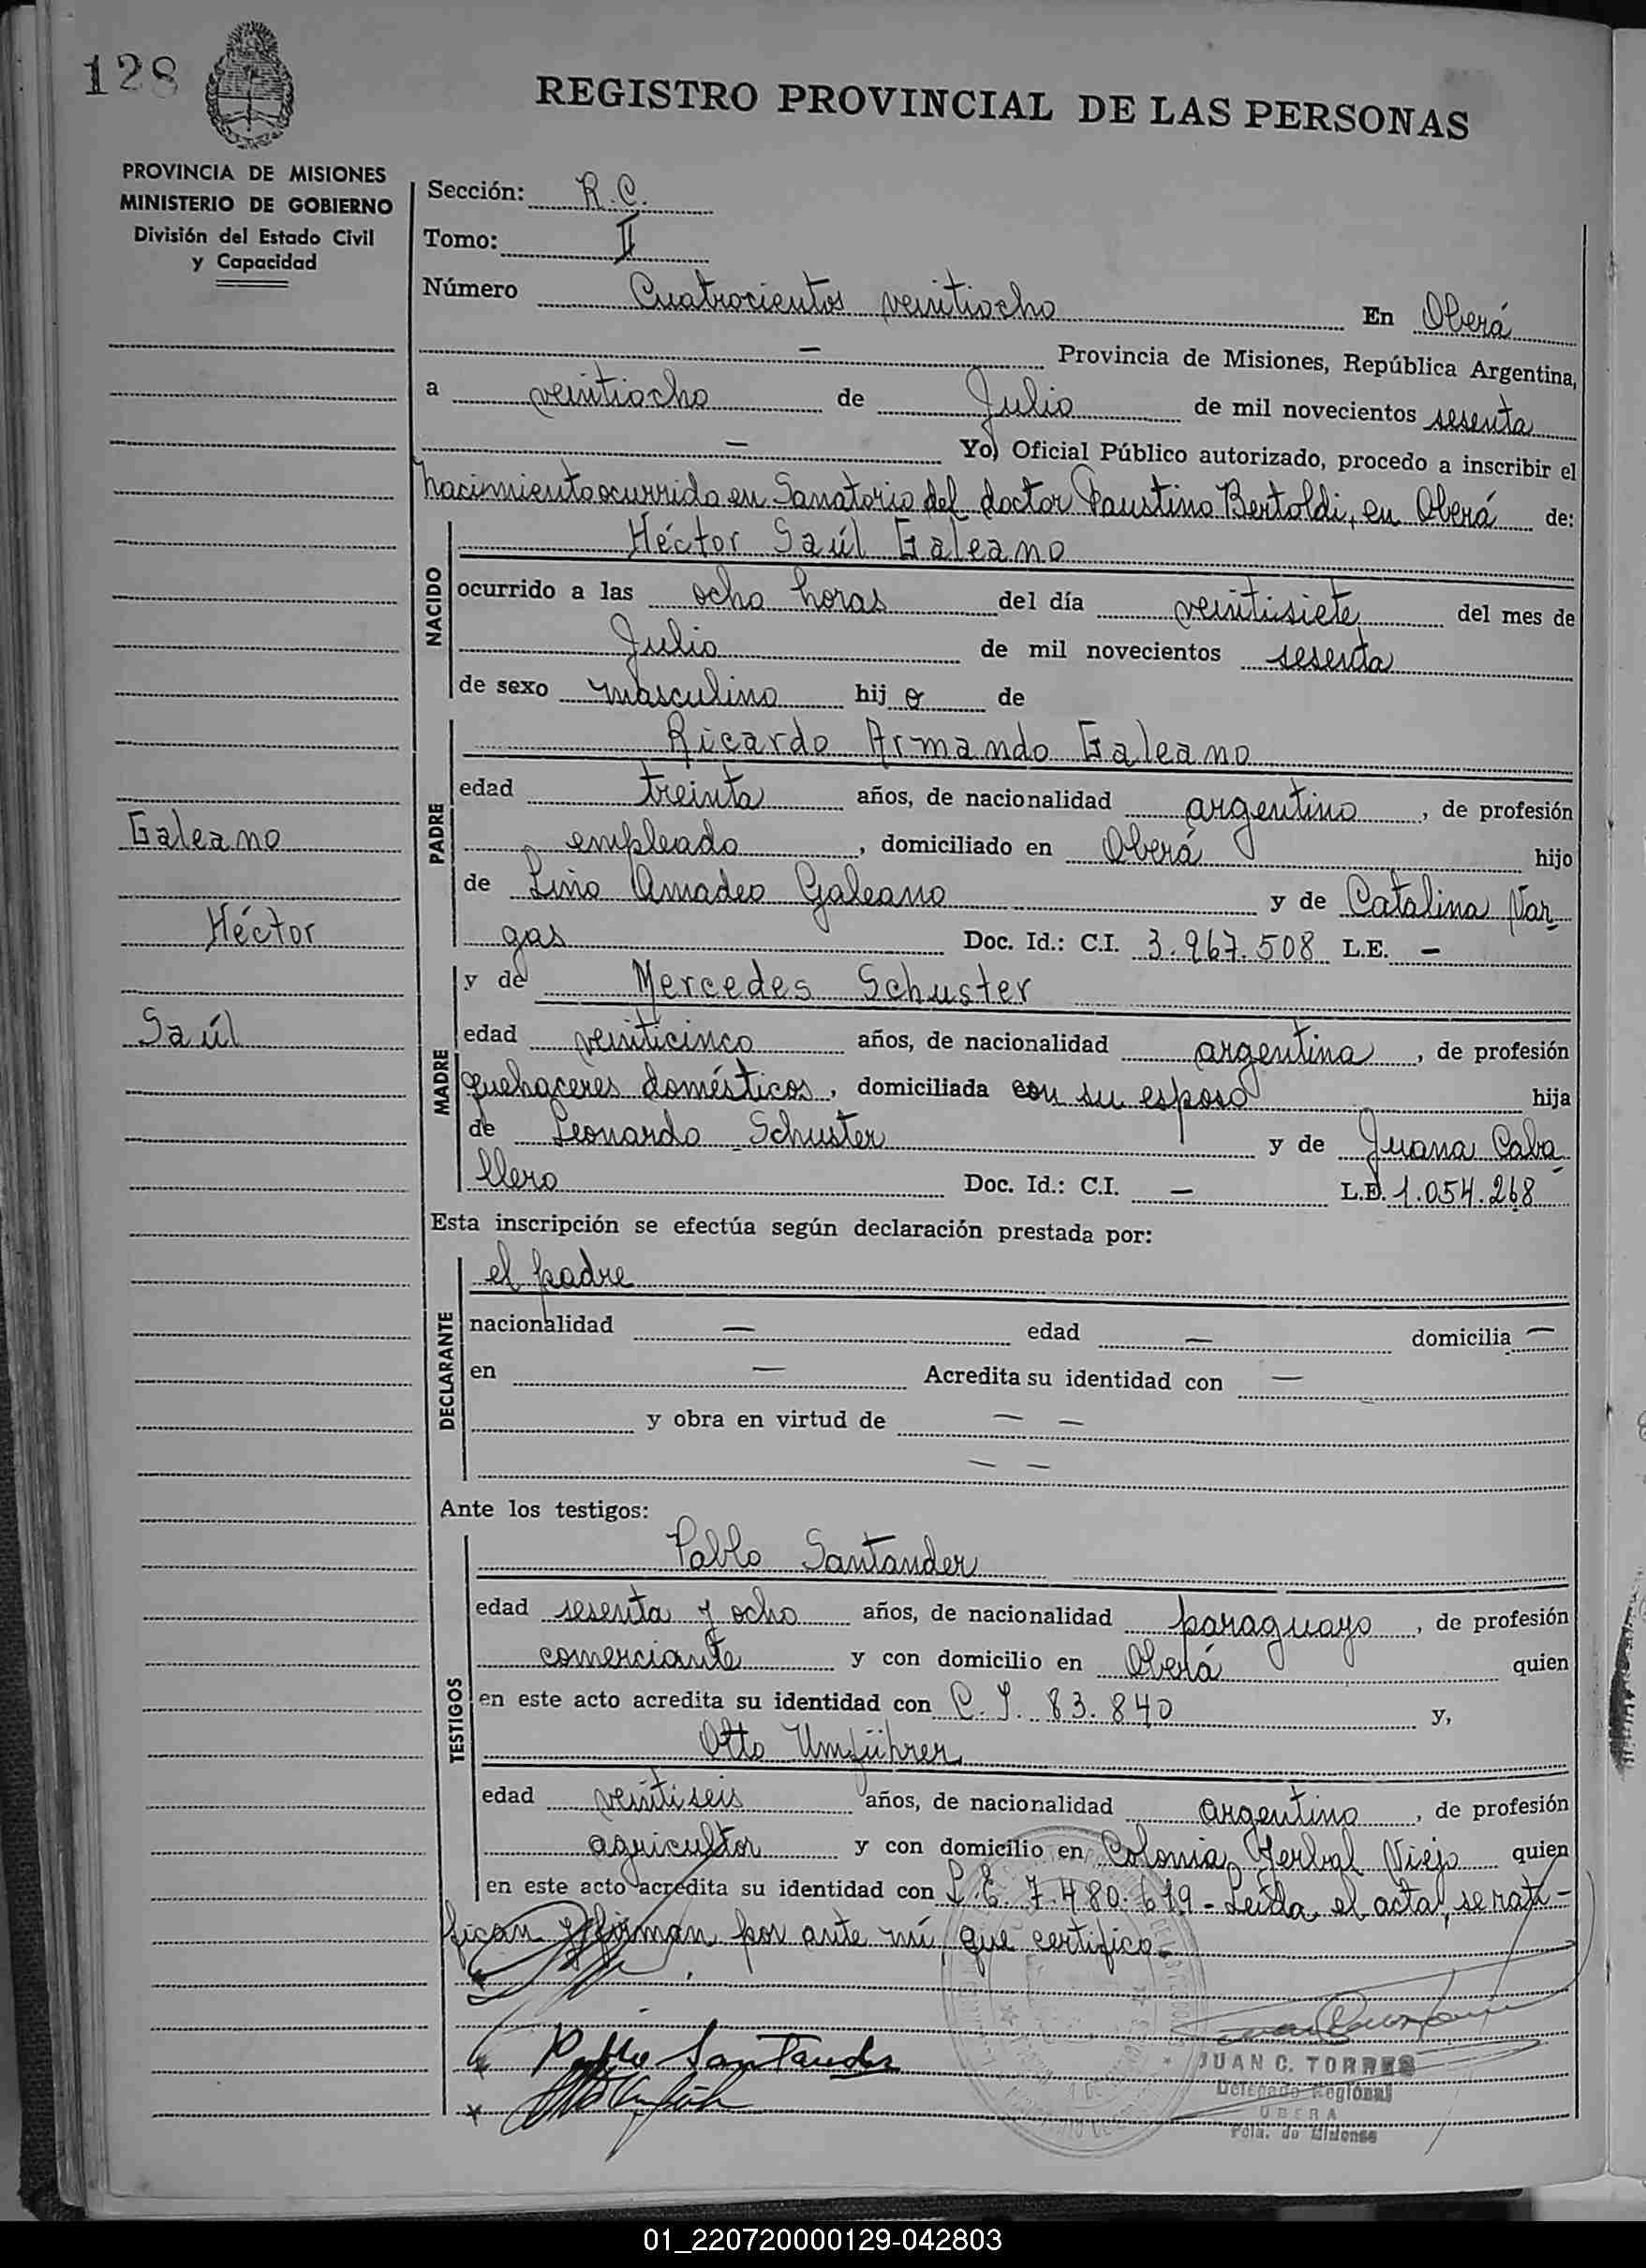 128
REGISTRO PROVINCIAL DE LAS PERSONAS
PROVINCIA DE MISIONES
MINISTERIO DE GOBIERNO
División del Estado Civil
y Capacidad
Sección: R.C.
Tomo: II
Número Cuatrocientos veintiocho En Oberá
— Provincia de Misiones, República Argentina,
a veintiocho de Julio de mil novecientos sesenta
— Yo) Oficial Público autorizado, procedo a inscribir el
nacimiento ocurrido en Sanatorio del doctor Faustino Bertoldi, en Oberá de:
NACIDO
Héctor Saúl Galeano
ocurrido a las ocho horas del día veintisiete del mes de
Julio de mil novecientos sesenta
de sexo masculino hij o de
PADRE
Ricardo Armando Galeano
edad treinta años, de nacionalidad argentino, de profesión
Galeano
empleado, domiciliado en Oberá hijo
de Lino Amadeo Galeano y de Catalina Var-
Héctor
gas Doc. Id.: C.I. 3.967.508 L.E. —
MADRE
y de Mercedes Schuster
Saúl
edad veinticinco años, de nacionalidad argentina, de profesión
quehaceres domésticos, domiciliada con su esposo hija
de Leonardo Schuster y de Juana Caba-
llero Doc. Id.: C.I. — L.E. 1.054.268
Esta inscripción se efectúa según declaración prestada por:
DECLARANTE
el padre
nacionalidad — edad — domicilia —
en — Acredita su identidad con —
y obra en virtud de — —
— —
Ante los testigos:
TESTIGOS
Pablo Santander
edad sesenta y ocho años, de nacionalidad paraguayo, de profesión
comerciante y con domicilio en Oberá quien
en este acto acredita su identidad con C.I. 83.840 y,
Otto Umführer
edad veintiseis años, de nacionalidad argentino, de profesión
agricultor y con domicilio en Colonia Yerbal Viejo quien
en este acto acredita su identidad con L.E. 7.480.619 - Leída el acta, se rati-
fican y firman por ante mí, que certifico.-
Pablo Santander
JUAN C. TORRES
Delegado Regional
OBERA
Pcia. de Misiones
01_220720000129-042803